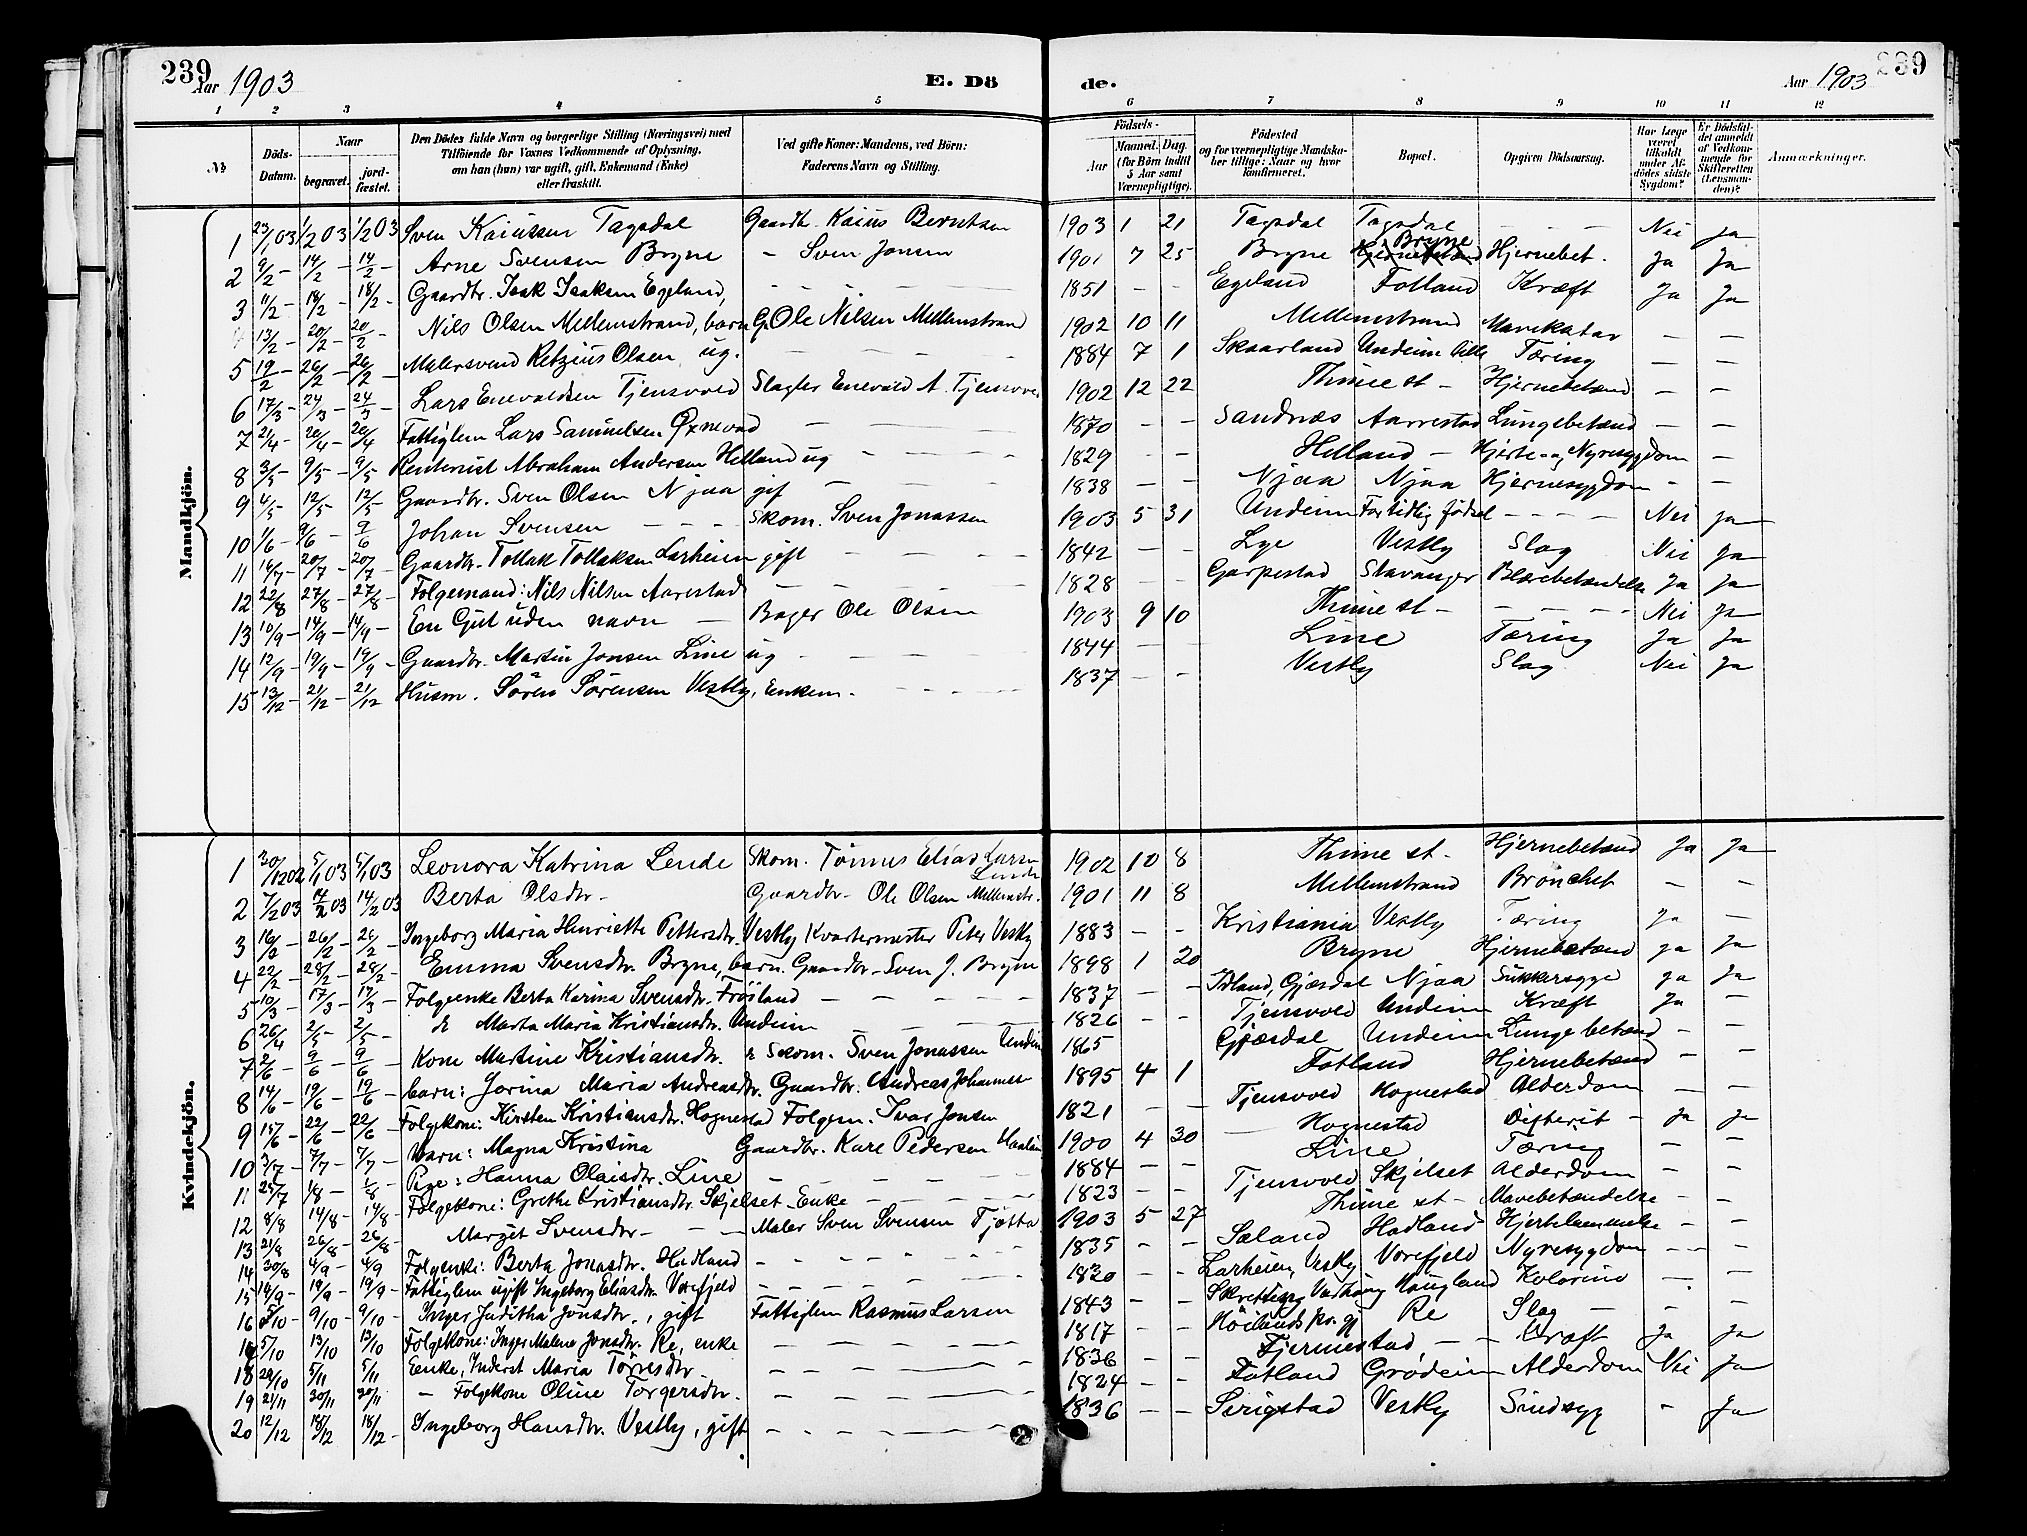 239 Aar 1903 E. Dö de. Aar 1903 239
1 2 3 4 5 6 7 8 9 10 11 12
№ Döds-Datum. Naar begravet. jordfæstet. Den Dödes fulde Navn og borgerlige Stilling (Næringsvei) med Tilföiende for Voxnes Vedkommende af Oplysning, om han (hun) var ugift, gift, Enkemand (Enke) eller fraskilt. Ved gifte Koner: Mandens, ved Börn: Faderens Navn og Stilling. Födsels- Aar Maaned. Dag. (for Börn indtil 5 Aar samt Værnepligtige). Födested og for værnepligtige Mandskaber tillige: Naar og hvor konfirmeret. Bopæl. Opgiven Dödsaarsag. Har Læge været tilkaldt under Afdödes sidste Sygdom? Er Dödsfaldet anmeldt af Vedkommende for Skifteretten (Lensmanden)? Anmærkninger.
Mandkjön.
1 23/1 03 1/2 03 1/2 03 Sven Kaiussen Tagsdal Gaardb. Kaius Berntsen 1903 1 21 Tagsdal Tagsdal - - - Nei ja
2 9/2 - 14/2 - 14/2 - Arne Svensen Bryne - Sven Jonsen 1901 7 25 Bryne Bryne Hjernebet. Ja Ja
3 11/2 - 18/2 - 18/2 - Gaardbr. Isak Isaksen Egeland, - - - 1851 - - Egeland Fotland Kræft Ja Ja
4 13/2 - 20/2 - 20/2 - Nils Olsen Mellemstrand, barn G. Ole Nilsen Mellemstrand 1902 10 11 Mellemstrand Mavekatar - -
5 19/2 - 26/2 - 26/2 - Malersvend Retzius Olsen ug. - - - 1884 7 1 Skaarland Undeim Tæring - -
6 17/3 - 24/3 - 24/3 - Lars Enevaldsen Tjensvold Slagter Enevald A. Tjensvol 1902 12 22 Thime st - Hjernebetænd - -
7 21/4 - 26/4 - 26/4 Fattiglem Lars Samuelsen Øxnevad - - - 1870 - - Sandnæs Aarrestad Lungebetænd - -
8 3/5 - 9/5 - 9/5 Rentenist Abraham Andersen Helland ug - - - 1829 - - Helland - Hjerte- og Nyresygdom -
9 4/5 - 12/5 - 12/5 Gaardbr. Sven Olsen Njaa gif - - - 1838 - - Njaa Njaa Hjernesygdom - -
10 1/6 - 9/6 - 9/6 Johan Svensen - - - Skom. Sven Jonassen 1903 5 31 Undeim For tidlig födsel - - - Nei ja
11 14/7 - 20/7 - 20/7 - Gaardbr. Tollak Tollaksen Larheim gift - - - 1842 - - Lye Vestly Slag Nei Ja
12 22/8 - 27/8 - 27/8 - Folgemand: Nils Nilsen Aarrestad - - - 1828 - - Garpestad Stavanger Blærebetændelse Ja Ja
13 10/9 - 14/9 - 14/9 - En Gut uden navn - Bager Ole Olsen 1903 9 10 Thime st - - - - Nei Ja
14 12/9 - 19/9 - 19/9 - Gaardbr. Martin Jonsen Line ug - - - 1844 - - Line Tæring Ja Ja
15 13/12 - 21/12 - 21/12 Husm. Sören Sörensen Vestly, Enkem. - - - 1837 - - Vestly Slag Nei Ja
Kvindekjön.
1 30/12 02 5/1 03 5/1 03 Leonora Katrina Lende Skom. Tönnes Elias Larsen Lende 1902 10 8 Thime st. Hjernebetænd Ja Ja
2 7/2 03 14/2 03 14/2 03 Berta Olsdtr. Gaardbr. Ole Olsen Mellemstr. 1901 11 8 Mellemstrand Bronchit - -
3 16/2 - 26/2 - 26/2 - Ingeborg Maria Henriette Pettersdtr. Vestly Kvartermester Peter Vestly 1883 - - Kristiania Vestly Tæring Ja -
4 22/2 - 28/2 - 28/2 - Emma Svensdtr. Bryne, barn. Gaardbr. Sven J. Bryne 1898 1 20 Bryne Hjernebetænd ja Ja
5 10/3 - 17/3 - 17/3 - Folgeenke Berta Karina Svensdtr. Fröiland - - - 1837 - - Gjæsdal Njaa Sukkersyge ja Ja
6 26/4 2/5 - 2/5 - Marta Maria Kristiansdtr. Undeim - - - 1826 - - Tjensvold Undeim Kræft Ja -
7 2/6 - 9/6 - 9/6 - Kone Martine Kristiansdtr. Skom. Sven Jonassen Undeim 1865 Gjæsdal Undeim Lungebetænd - -
8 14/6 - 19/6 - 19/6 - barn: Jorina Maria Andreasdtr. Gaardbr. Andreas Johannes 1895 4 1 Fotland Hjernebetænd - -
9 15/6 - 22/6 - 22/6 - Folgekone: Kirsten Kristiansdtr. Hognestad Folgem. Ivar Jonsen 1821 - - Tjensvold Hognestad Alderdom - -
10 3/7 - 7/7 - 7/7 - Barn: Magna Kristina Gaardbr. Kare Pedersen 1900 4 30 - Hognestad Difterit - ja ja
11 25/7 1/8 - 1/8 - Pige: Hanna Olaisdtr. Line - - - 1884 - - Line Tæring - -
12 8/8 14/8 - 14/8 - Folgekone: Grethe Kristiansdtr. Skjelset - Enke - - - 1823 - - Tjensvold Skjelset Alderdom - -
13 21/8 26/8 - 26/8 - Margit Svensdtr. - - Maler Sven Svensen Tjøtta 1903 5 27 Thime st - Mavebetændelse - -
14 30/8 4/9 - 4/9 Folgeenke: Berta Jonasdtr. Hadland - - - 1835 - - Sæland Hadland Hjertelammelse - -
15 14/9 - 19/9 - 19/9 Fattiglem ugift Ingeborg Eliasdtr. Vorefjeld - - - 1820 - - Larheim, Vestly Vorefjeld Nyresygdom - -
16 5/10 - 9/10 - 9/10 - Inger Juditha Jonsdtr., gift Fattiglem Rasmus Larsen 1843 - - Haugland Kolerine - -
5/10 13/10 13/10 Folgekone: Inger Malene Jonsdtr. Re, enke - - - 1817 - - Höilands pr. gj Re Slag - -
18 28/10 5/11 5/11 Enke, Inderst Maria Törresdtr. - - - 1836 - - Tjermestad, - - Kræft Ja Ja
19 21/11 20/11 20/11 - Folgekone Oline Torgersdtr. - - - 1824 - - Fotland Grødeim Alderdom Nei Ja
20 12/12 18/12 18/12 - Ingeborg Hansdtr. Vestly, gift - - - 1836 - - Sirigstad Vestly Sindsyg - Ja